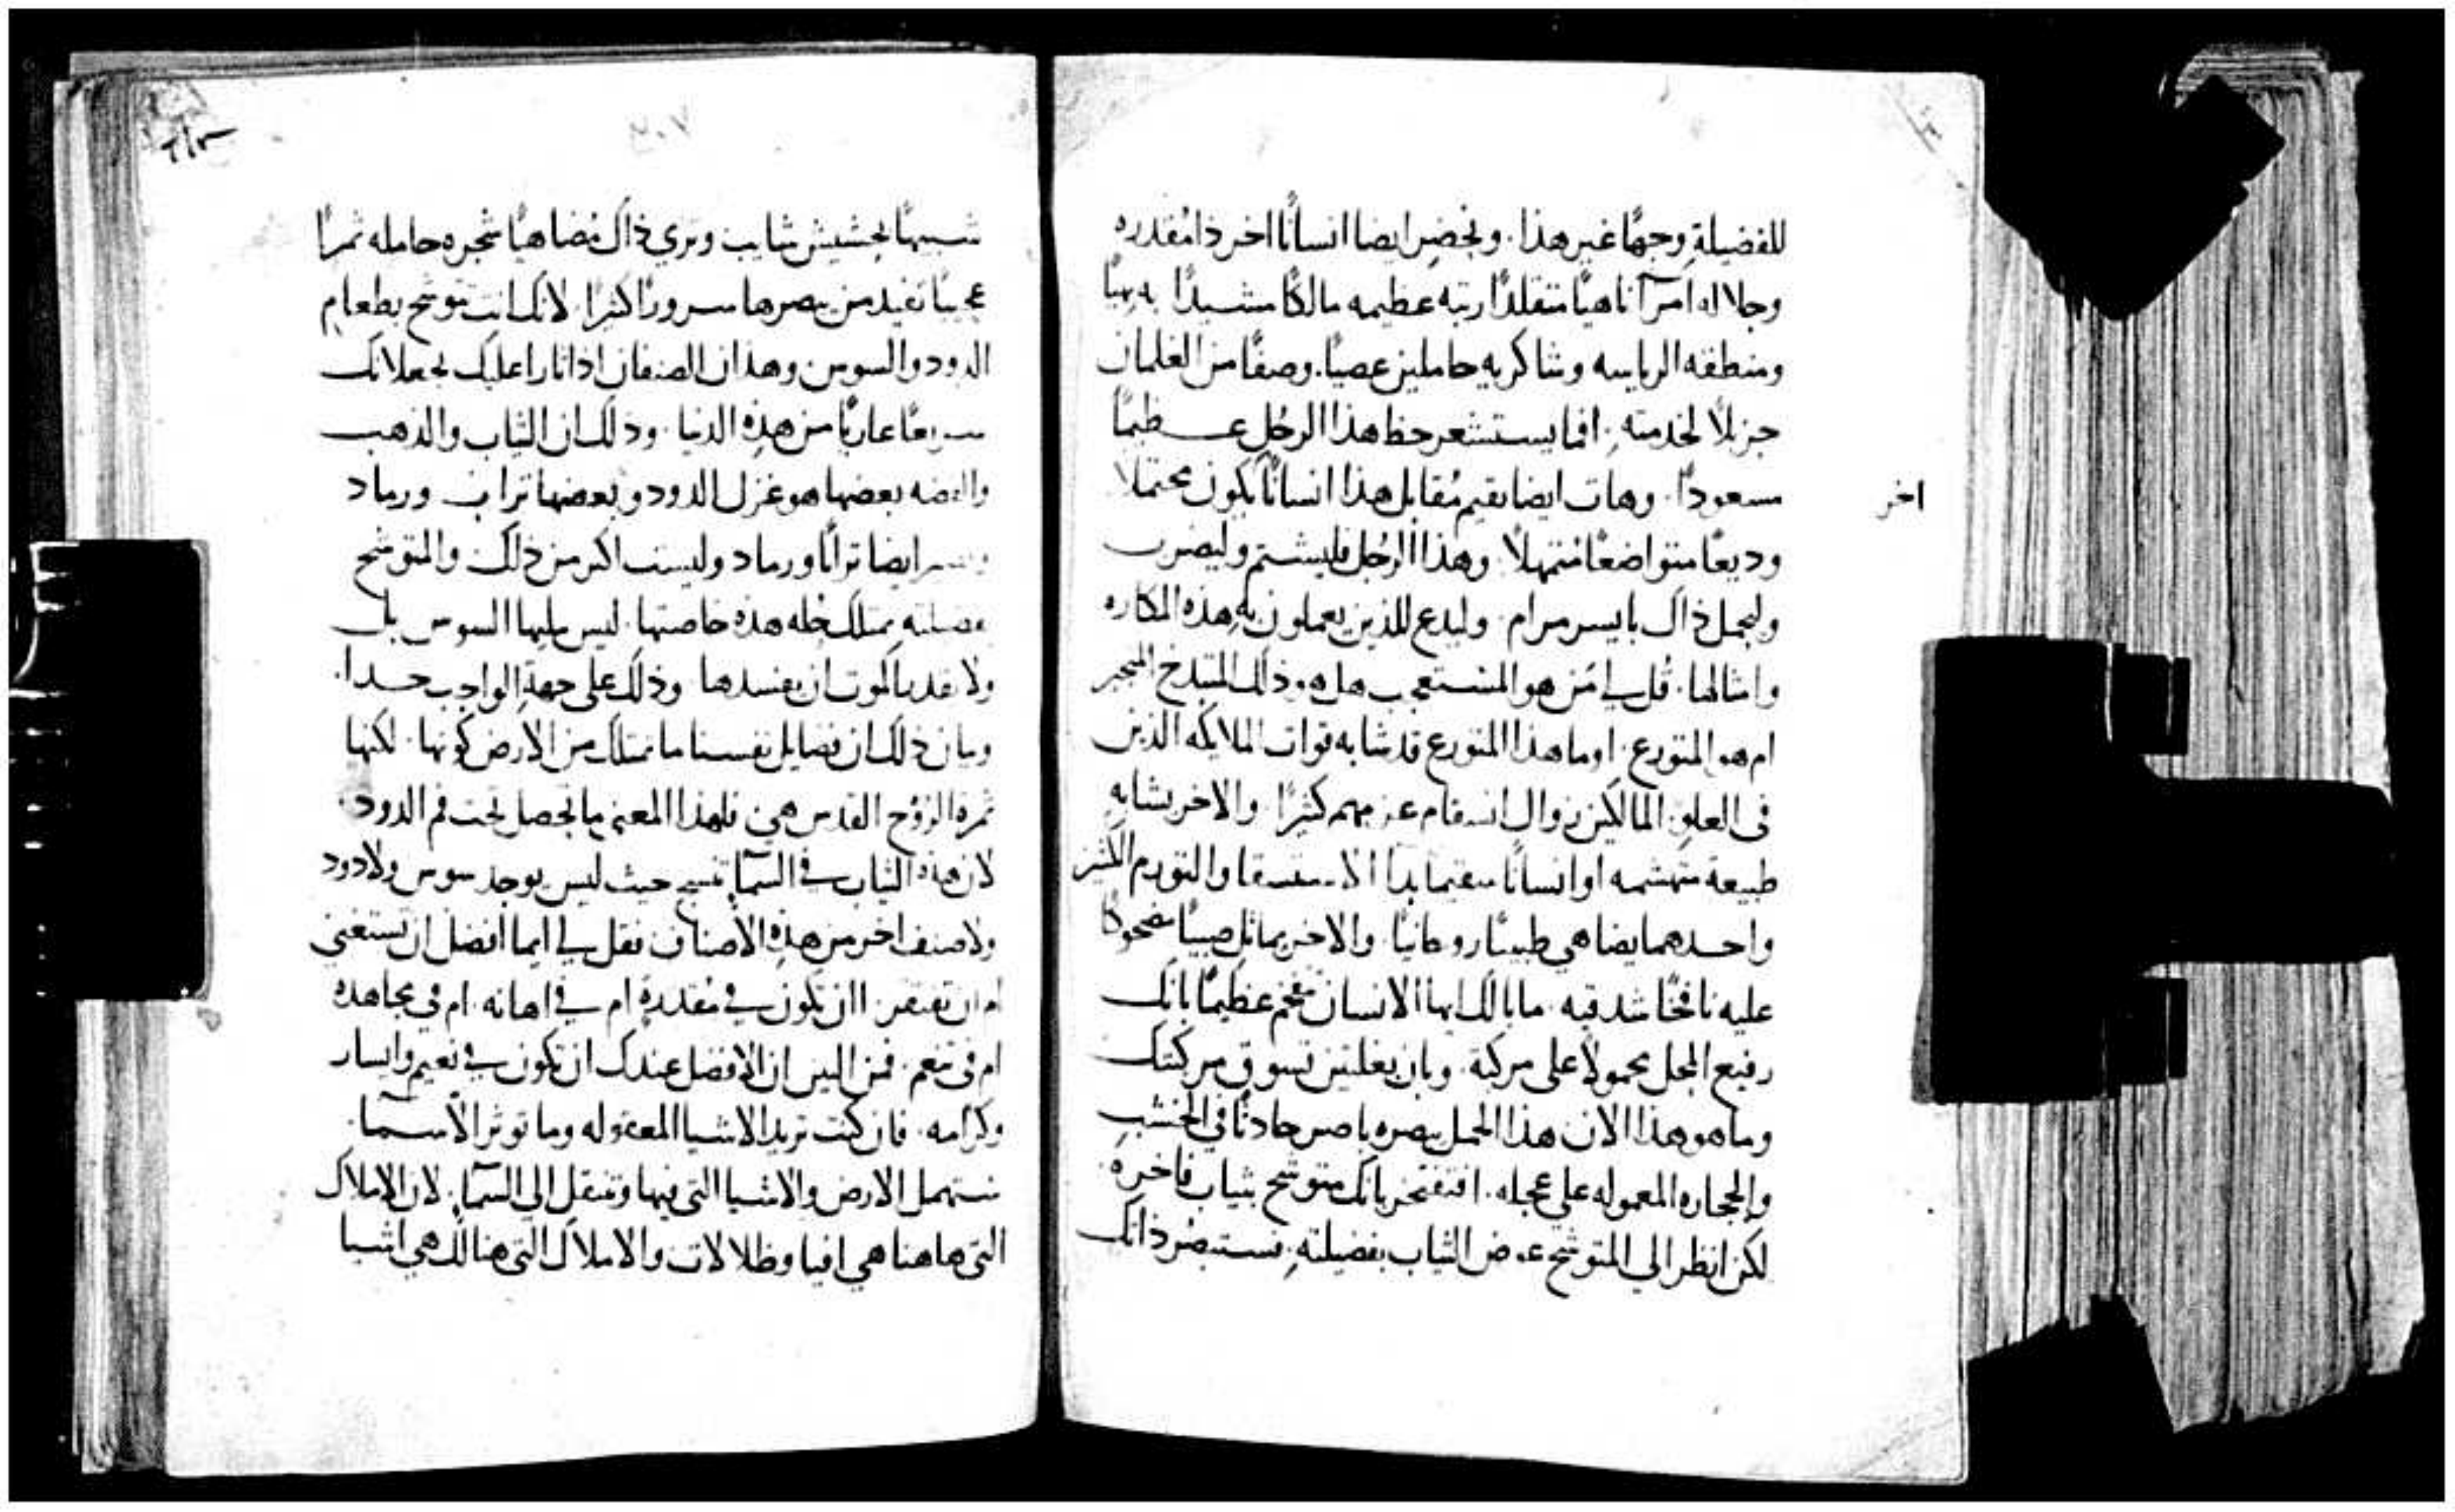 للفضيلةِ وجهًا غير هذا. ونحضر ايضا انسانًا اخر ذا مُقدره
وجلاله آمرًا ناهيًا متقلدًا رتبه عظيمه مالكًا مشيدًا بهيًا
ومنطقه الرياسه وشاكريه حاملين عصيًا. وصفًا من الغلمان
جزيلًا لخدمته. افما يستشعر حظ هذا الرجُل عظيمًا
مسعودًا. وهات ايضا نقيم مُقابل هذا انسانًا يكون محتملا
اخر
وديعًا متواضعًا مُتمهلًا. وهذا الرجُل فليشتم وليضرب
وليحمل ذاك بايسر مرام. وليدع للذين يعملون به هذه المكاره
وامثالها. قُل لي مَن هو المستعجب هل هو ذلك المتبذخ المتجبر
ام هو المتورع. اوما هذا المتورع قد شابه قوات الملايكه الذين
في العلو. المالكين زوال اسقام عزمهم كثيرًا. والاخر يشابه
طبيعة متهشمه او انسانًا سقيما بدا الاستسقا والتورم الكثير
واحدهما يضاهي طبيبًا روحانيًا. والاخر يماثل صبيًا مضحوكًا
عليه نافخًا شدقيه. ما بالك ايها الانسان تفخم عظيمًا بانك
رفيع المحل محمولًا على مركبة. وبان بغلتين تسوق مركبتك
وما هو هذا الان هذا الحمل يبصره باصر حادثًا في الخشب
والحجاره المعموله على عجله. افتفتخر بانك متوشح بثياب فاخره.
لكن انظر الي المتوشح عوض الثياب بفضيلتهِ. فستبصُر ذاتك
٢٠٧
شبيهًا بحشيش شايب وتري ذاك مُضاهيًا شجره حامله ثمرًا
عجيبًا تفيد من يبصرها سرورًا كثيرًا. لانك انت متوشح بطعام
الدود والسوس وهذان الصنفان اذا ثارا عليك يجعلانك
سريعًا عاريًا من هذهِ الدنيا. وذلك ان الثياب والذهب
والفضه بعضها هو غزل الدود وبعضها تراب ورماد
ايضا ترابًا ورماد وليست اكثر من ذلك. والمتوشح
بفضيلته يمتلك حُله هذه خاصتها. ليس يبليها السوس بل
ولا يقدر الموت ان يفسدها. وذلك على جهةِ الواجب جدا.
وبيان ذلك ان فضايل نفسنا ما تمتلك من الارض كونها. لكنها
ثمرة الروُح القدس هي. فلهذا المعنى ما تحصل تحت فم الدود.
لان هذه الثياب في السمآ تنسج حيث ليس يوجد سوس ولا دود
ولا صنف اخر من هذهِ الاصناف. فقل لي ايما افضل ان تستغني
ام ان تفتقر. اان تكون في مُقدرةٍ ام في اهانه. ام في مجاهده
ام في تنعم. فمن البين ان الافضل عندك ان تكون في نعيم وايسار
وكرامه. فان كنت تريد الاشيا المعقوله وما توثر الاسما.
ستهمل الارض والاشيا التي فيها وتنتقل الي السمآ. لان الاملاك
التي هاهنا هي افيا وظلالات والاملاك التي هنالك هي اشيا